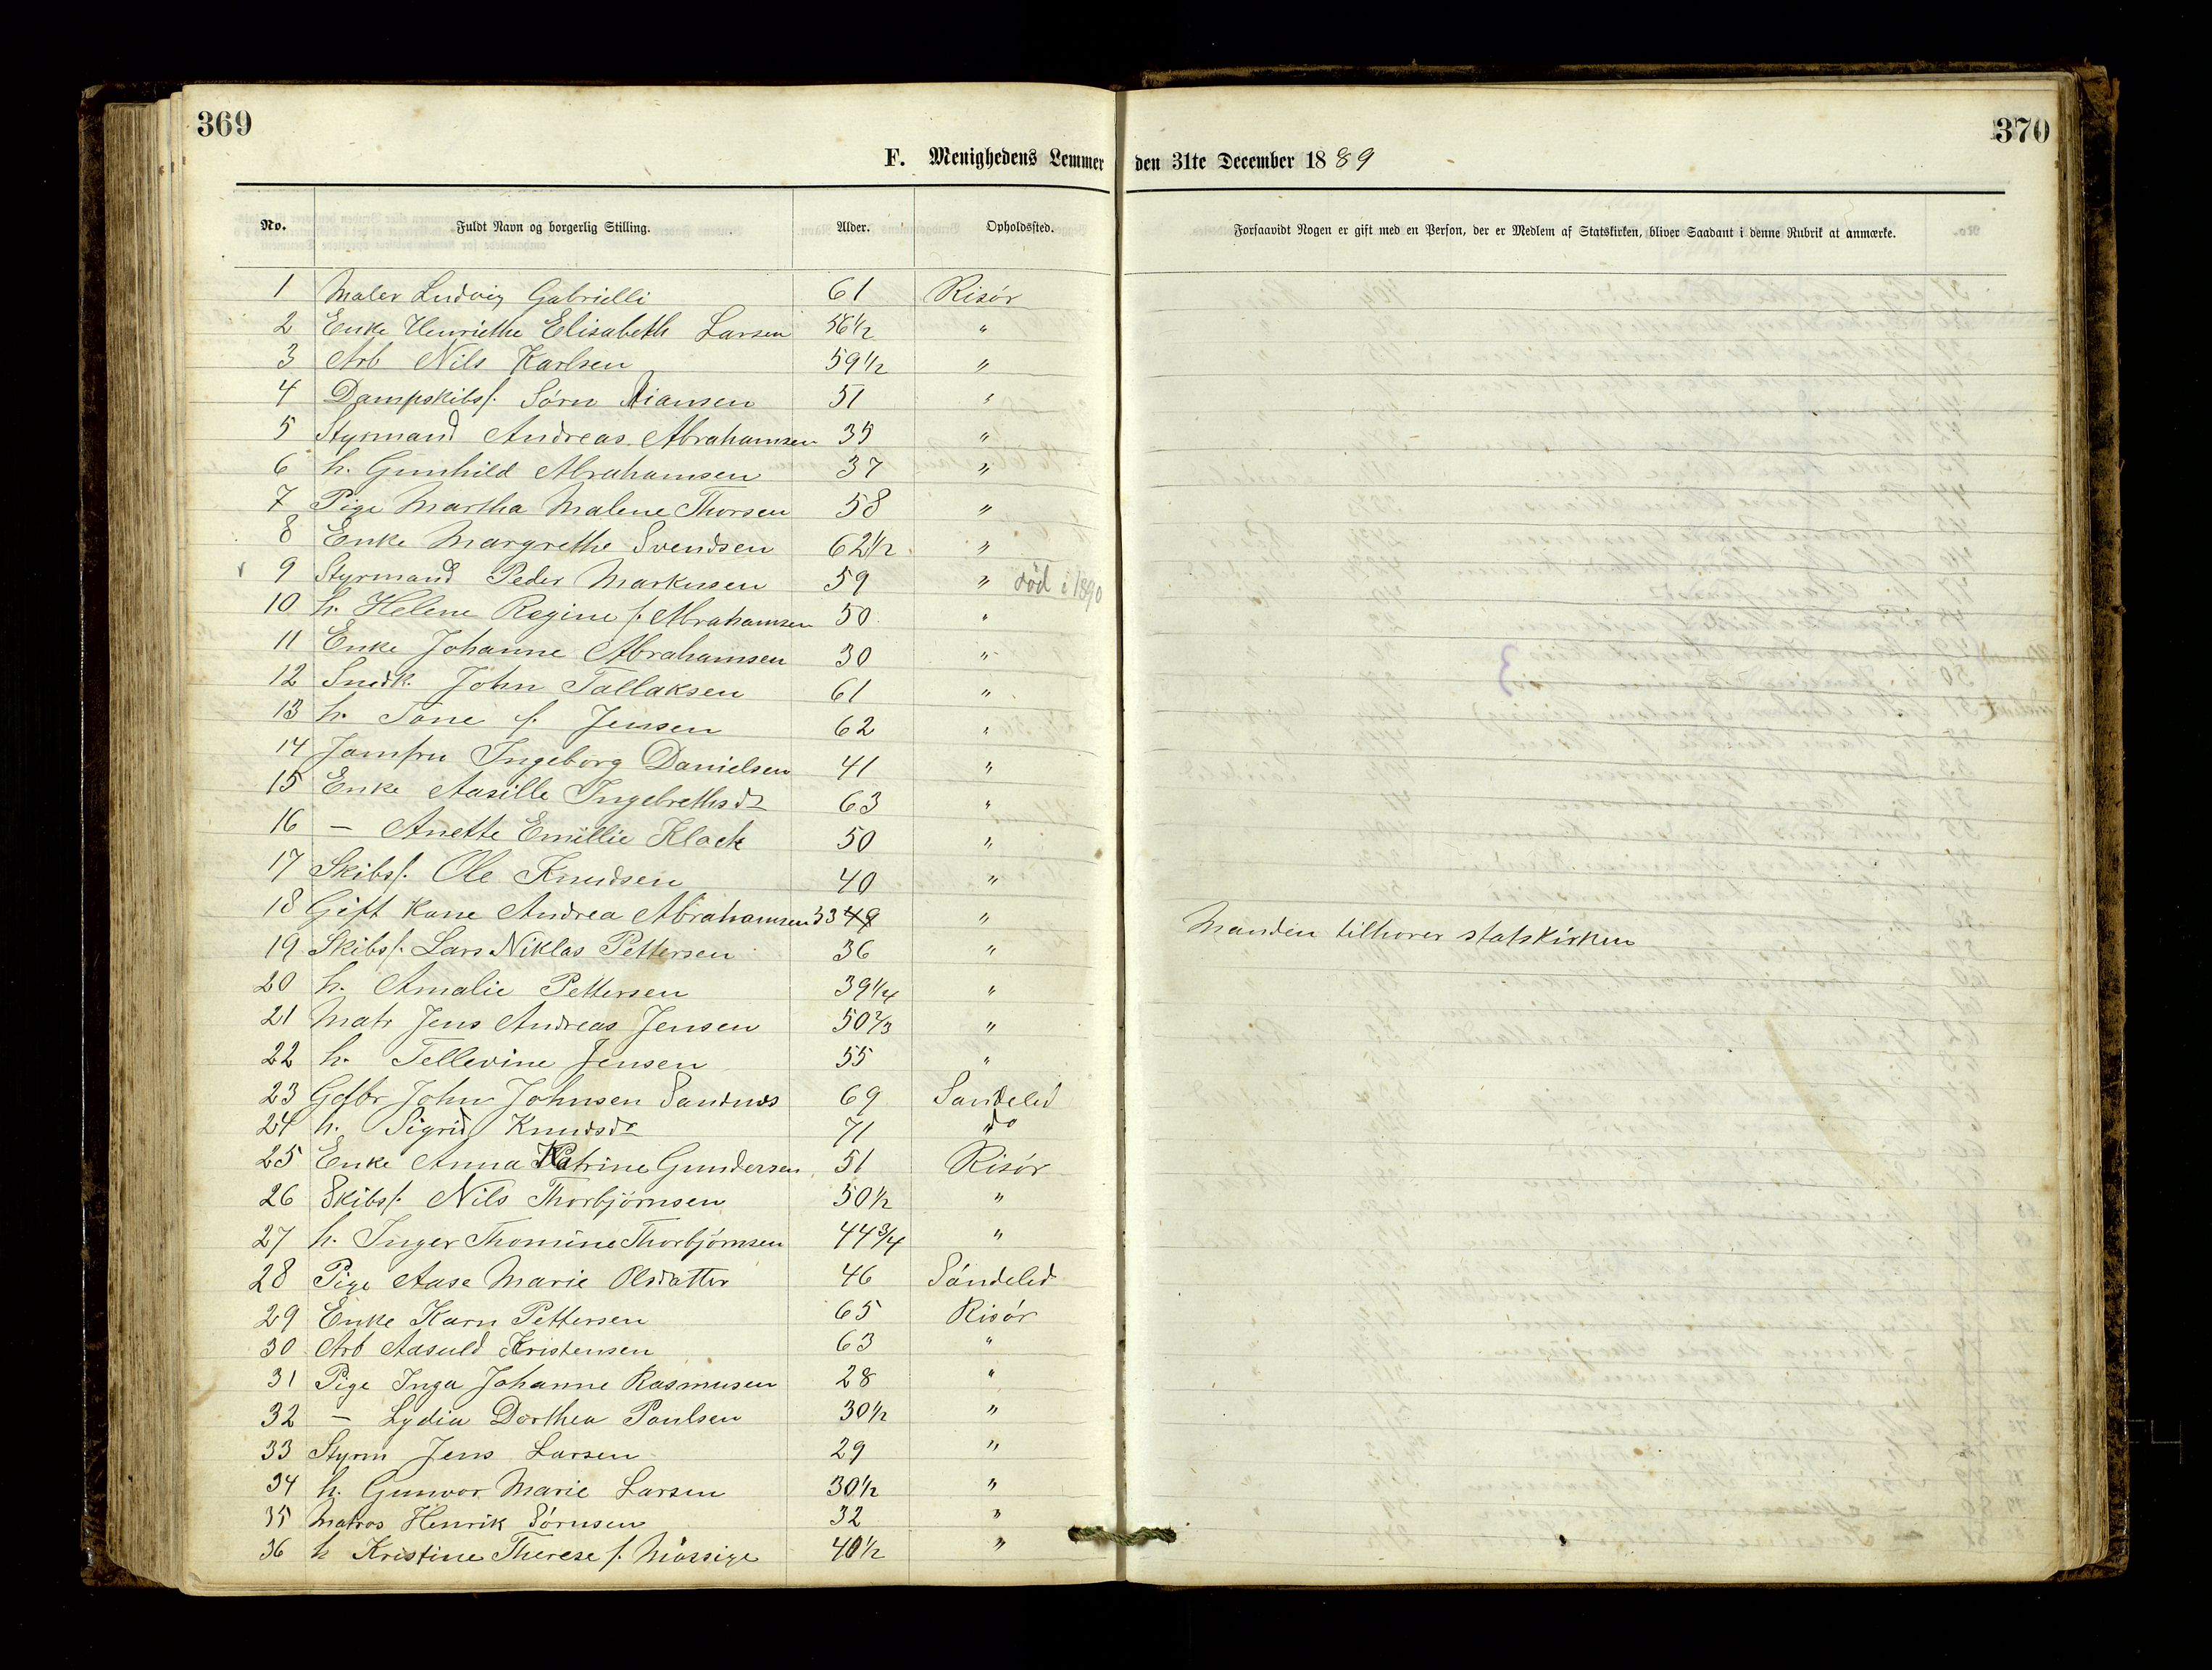 369
370
F. Menighedens Lemmer den 31te December 1889
No. Fuldt Navn og borgerlig Stilling. Alder. Opholdssted. Forsaavidt Nogen er gift med en Person, der er Medlem af Statskirken, bliver Saadant i denne Rubrik at anmærke.
1 Maler Ludvig Gabrielli 61 Risör
2 Enke Henriethe Elisabeth Larsen 56 1/2 "
3 Arb Nils Karlsen 59 1/2 "
4 Dampskibsf. Sörn 51 "
5 Styrmand Andreas Abrahamsen 35 "
6 h. Gunhild Abrahamsen 37 "
7 Pige Martha Malene Thorsen 58 "
8 Enke Margrethe Svendsen 62 1/2 "
9 Styrmand Peder Markussen 59 " död i 1890
10 h. Helene Regine f. Abrahamsen 50 "
11 Enke Johanne Abrahamsen 30 "
12 Snedk. John Tallaksen 61 "
13 h. Tone f. Jensen 62 "
14 Jomfru Ingeborg Danielsen 41 "
15 Enke Aasille Ingebrethsdr 63 "
16 – Anette Emillie Klock 50 "
17 Skibsf. Ole Knudsen 40 "
18 Gift Kone Andrea Abrahamsen 53 49 " Manden tilhorer statskirken
19 Skibsf. Lars Niklas Pettersen 36 "
20 h. Amalie Pettersen 39 1/4 "
21 Matr Jens Andreas Jensen 50 2/3 "
22 h. Tellevine Jensen 55 "
23 Gdbr John Johnsen Sandnes 69 Sandeled
24 h. Sigrid Knudsdr 71 do
25 Enke Anna Katrine Gundersen 51 Risör
26 Skibsf. Nils Thorbjörnsen 50 1/2 "
27 h. Inger Thomine Thorbjörnsen 44 3/4 "
28 Pige Aase Marie Olsdatter 46 Söndeled
29 Enke Karn Pettersen 65 Risör
30 Arb Aasuld Kristensen 63 "
31 Pige Inga Johanne Rasmusen 28 "
32 – Lydia Dorthea Paulsen 30 1/2 "
33 Styrm Jens Larsen 29 "
34 h. Gunvor Marie Larsen 30 1/2 "
35 Matros Henrik Sörnsen 32 "
36 h Kristine Therese f. Mörsige 40 1/2 "